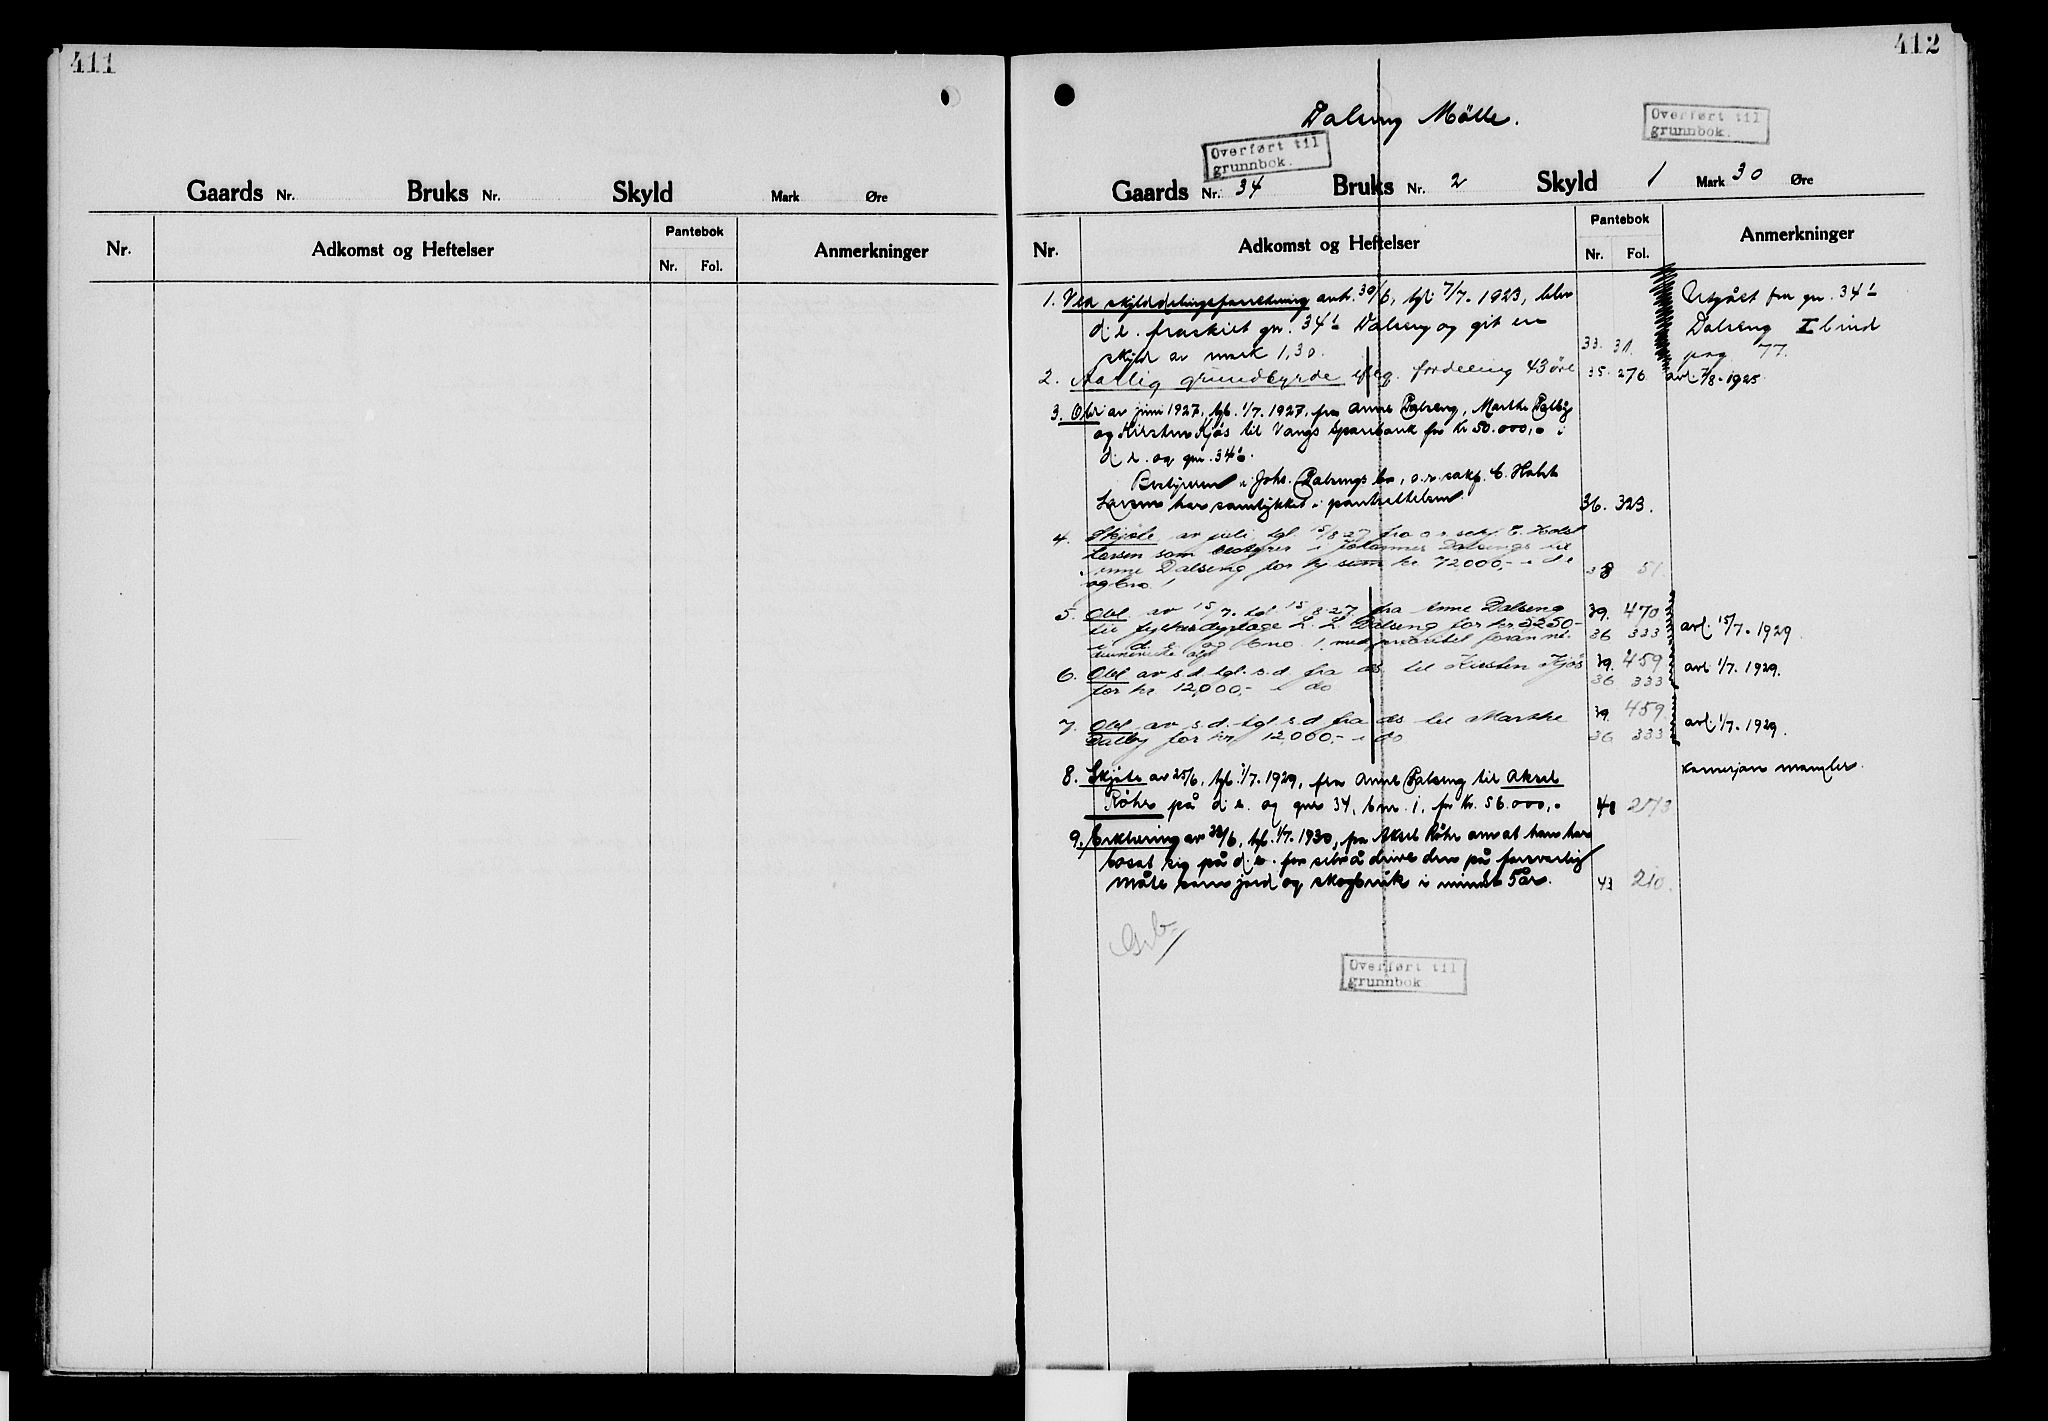 411
Gaards Nr. Bruks Nr. Skyld Mark Øre
Nr. Adkomst og Heftelser Pantebok Nr. Fol. Anmerkninger
412
Dalseng Mølle.
Overført til
grunnbok.
Overført til
grunnbok.
Gaards Nr. 34 Bruks Nr. 2 Skyld 1 Mark 30 Øre
Nr. Adkomst og Heftelser Pantebok Nr. Fol. Anmerkninger
1. Ved skylddelingsforretning avh. 30/6, tgl. 7/7. 1923, blev
d. e. fraskilt gnr. 34/1 Dalseng og git en
skyld av mark 1,30. 33. 31.
Utgået fra gnr. 34/1
Dalseng I bind
pag. 77.
2. Aarlig grundbyrde efter fordeling 43 øre 35. 276 avl. 7/8-1925.
3. Obl. av juni 1927, tgl. 1/7. 1927, fra Anne Dalseng, Marthe Dalby
og Kirsten Kjøs til Vangs Sparebank for kr 50.000,- i
d. e. og gnr. 34/1.
Bestyreren i Johs. Dalsengs bo, o.r.sakf. C. Holst
Larsen har samtykket i pantsettelsen. 36. 323.
4. Skjøte av juli, tgl. 15/8 27 fra o.r. sakf. C. Holst
Larsen som bestyrer i Johannes Dalsengs til
Anne Dalseng for kj sum kr. 72000,- i d. e
og bno. 1 38 51.
5. Obl. av 15/7. tgl. 15/8 27 fra Anne Dalseng 39. 470
til L. L. Dalseng for kr. 5250- 36 333 avl. 15/7. 1929.
i d. e og bno. 1, med prioritet foran
6. Obl av s.d. tgl. s.d. fra ds. til Kirsten Kjøs 39. 459 avl 1/7. 1929.
for kr. 12,000,- i do 36 333
7. Obl av s.d. tgl. s.d fra ds til Marthe 39. 459. avl. 1/7. 1929.
Dalby for kr. 12,000,- i do 36 333
8. Skjøte av 25/6, tgl. 1/7. 1929, fra Anne Dalseng til Aksel
Røhr på d. e. og gnr 34, bnr. 1, for kr. 56.000,-
mangler.
9. Erklæring av 28/6, tgl. 1/7. 1930, fra Aksel Røhr om at han har
bosat sig på d. e. for selv å drive den på forsvarlig
måte som jord og skogbruk i minst 5 år. 43 210.
Overført til
grunnbok